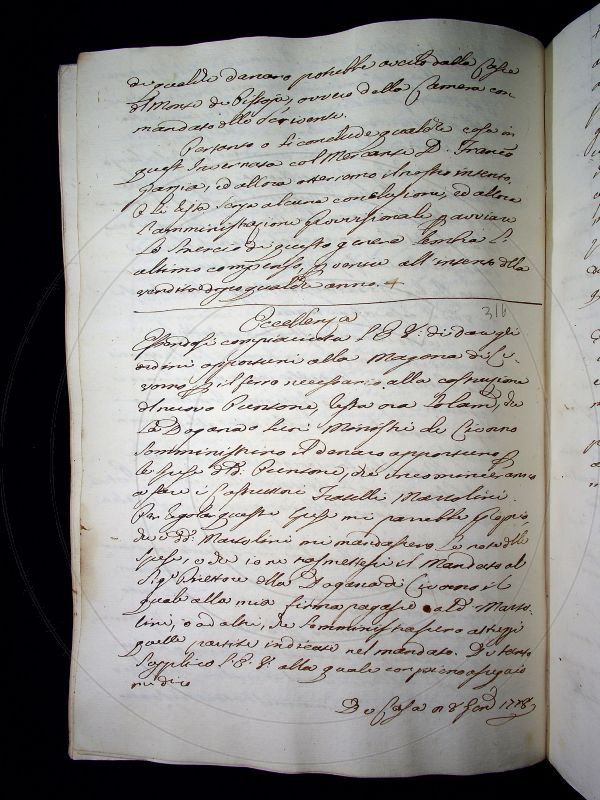 di qualche danaro potrebbe avuto dalla Cassa
di Monte di Pistoja, ovvero della Camera con
mandato dello Scrivente.
Pertanto o si conclude qualche cosa in
quest'Invernata col Mercante D. Franco
ed allora otterremo il nostro intento,
O si resta senza alcuna conclusione, ed allora
l'amministrazione provvisionale p avviare
lo smercio di questo genere sembra l'
ultimo compenso, p venire all'intento della
vendita dopo qualche anno.
316
Eccellenza
Essendosi compiaciuta l'E. V. di dare gli
ordini opportuni alla Magona di Li
vorno p il ferro necessario alla costruzione
di nuovo Puntone, resta ora solam, che
la Dogana, o sieno Ministri di Livorno
somministrino il denaro opportuno
le spese di D. Puntone, che incominceranno
a fare i Costruttori Fratelli Mattolini.
Per regola queste spese mi parrebbe proprio,
che o dd. Mattolini mi mandassero le note delle
spese, o che io ne trasmettessi il Mandato al
Sig. Direttore della Dogana di Livorno il
quale alla mia firma pagasse a dd. Matto-
lini, o ad altri, che somministrassero attrezzi
quelle partite indicate nel mandato. Di tanto
supplico l'E. V. alla quale con pieno ossequio
mi dico
Di Casa 8 Gen. 1778